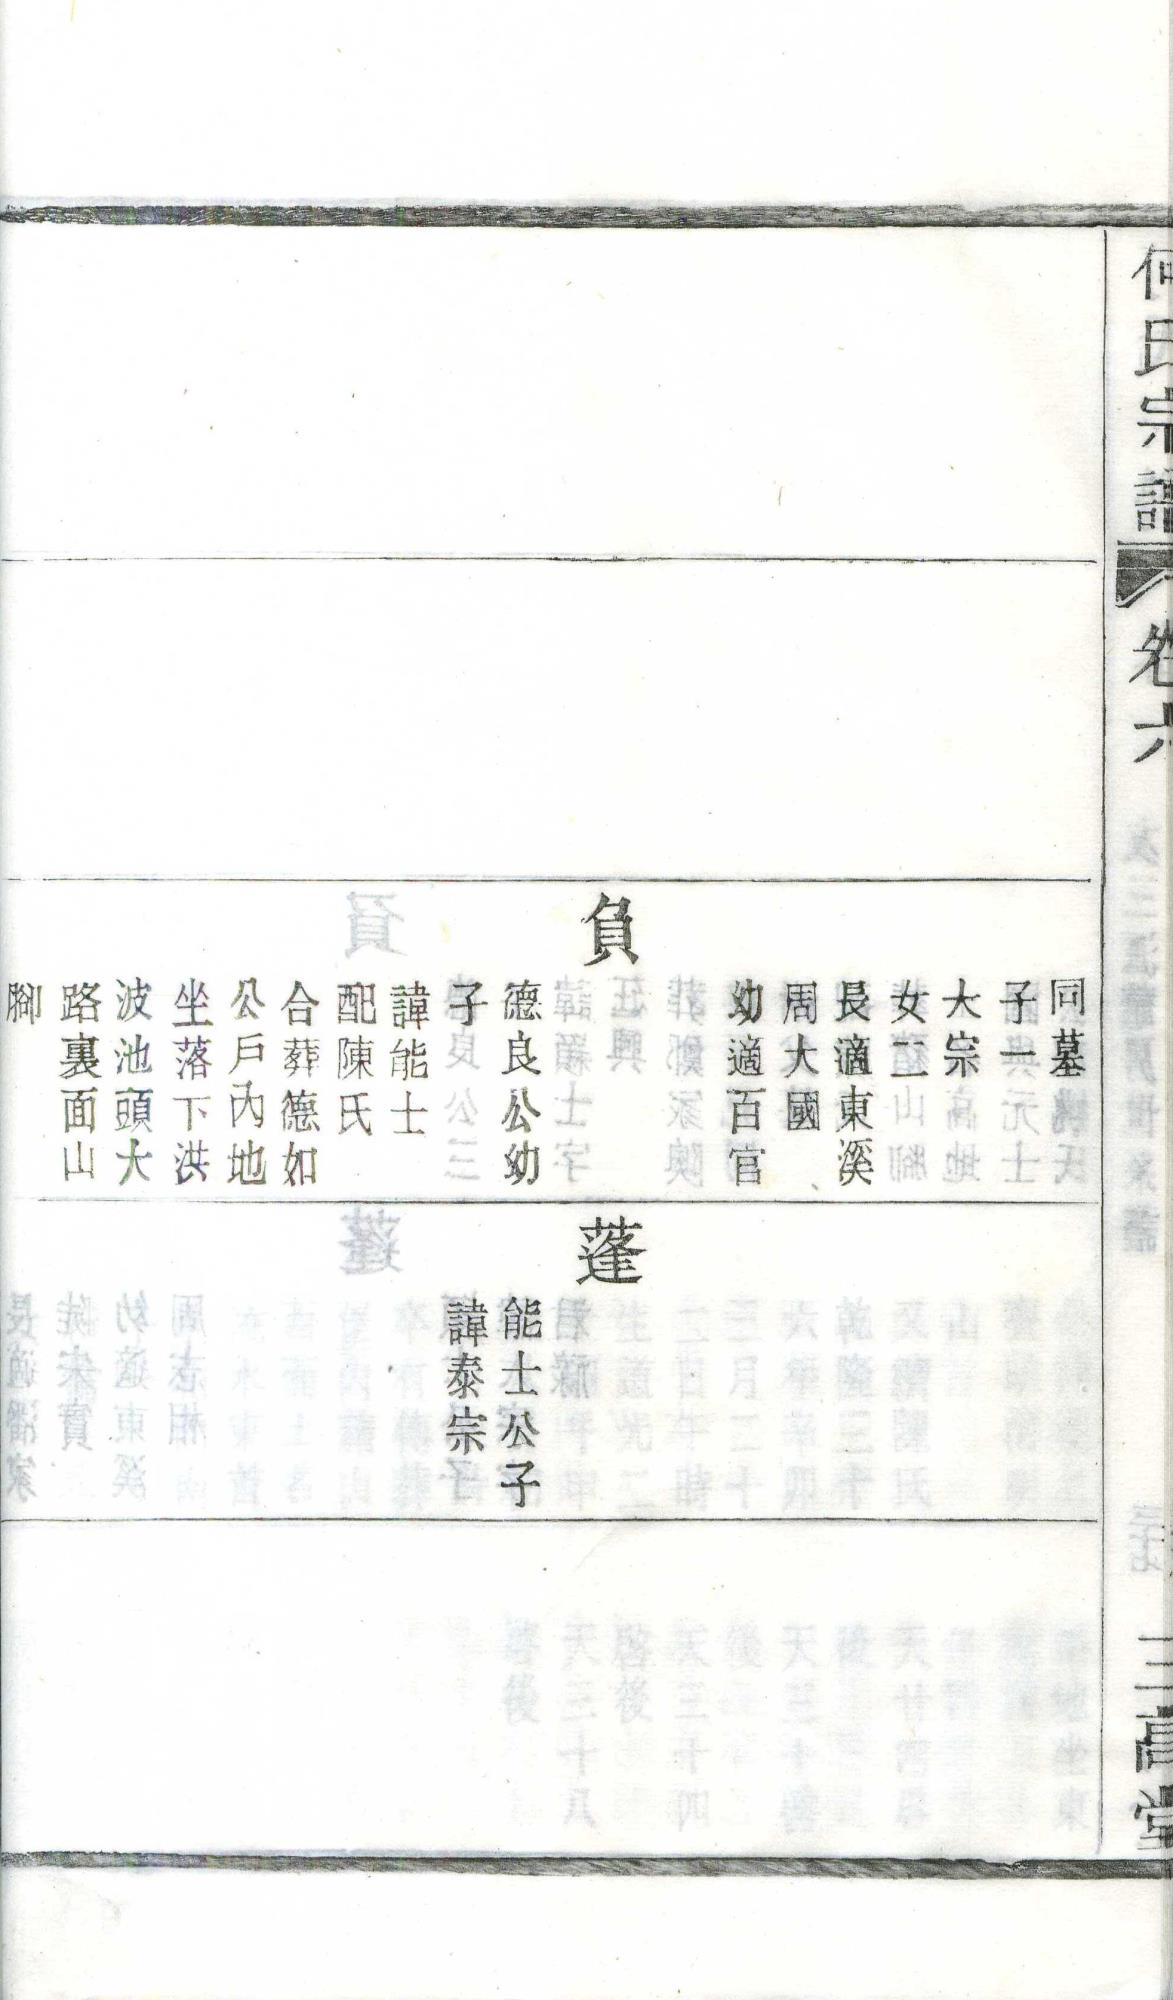 何氏宗譜
卷六
三高堂
負
同墓
子一
大宗
女二
長適東溪
周大國
幼適百官
德良公幼
子
諱能士
配陳氏
合葬德如
公戶內地
坐落下洪
波池頭大
路裏面山
腳
蓬
能士公子
諱泰宗